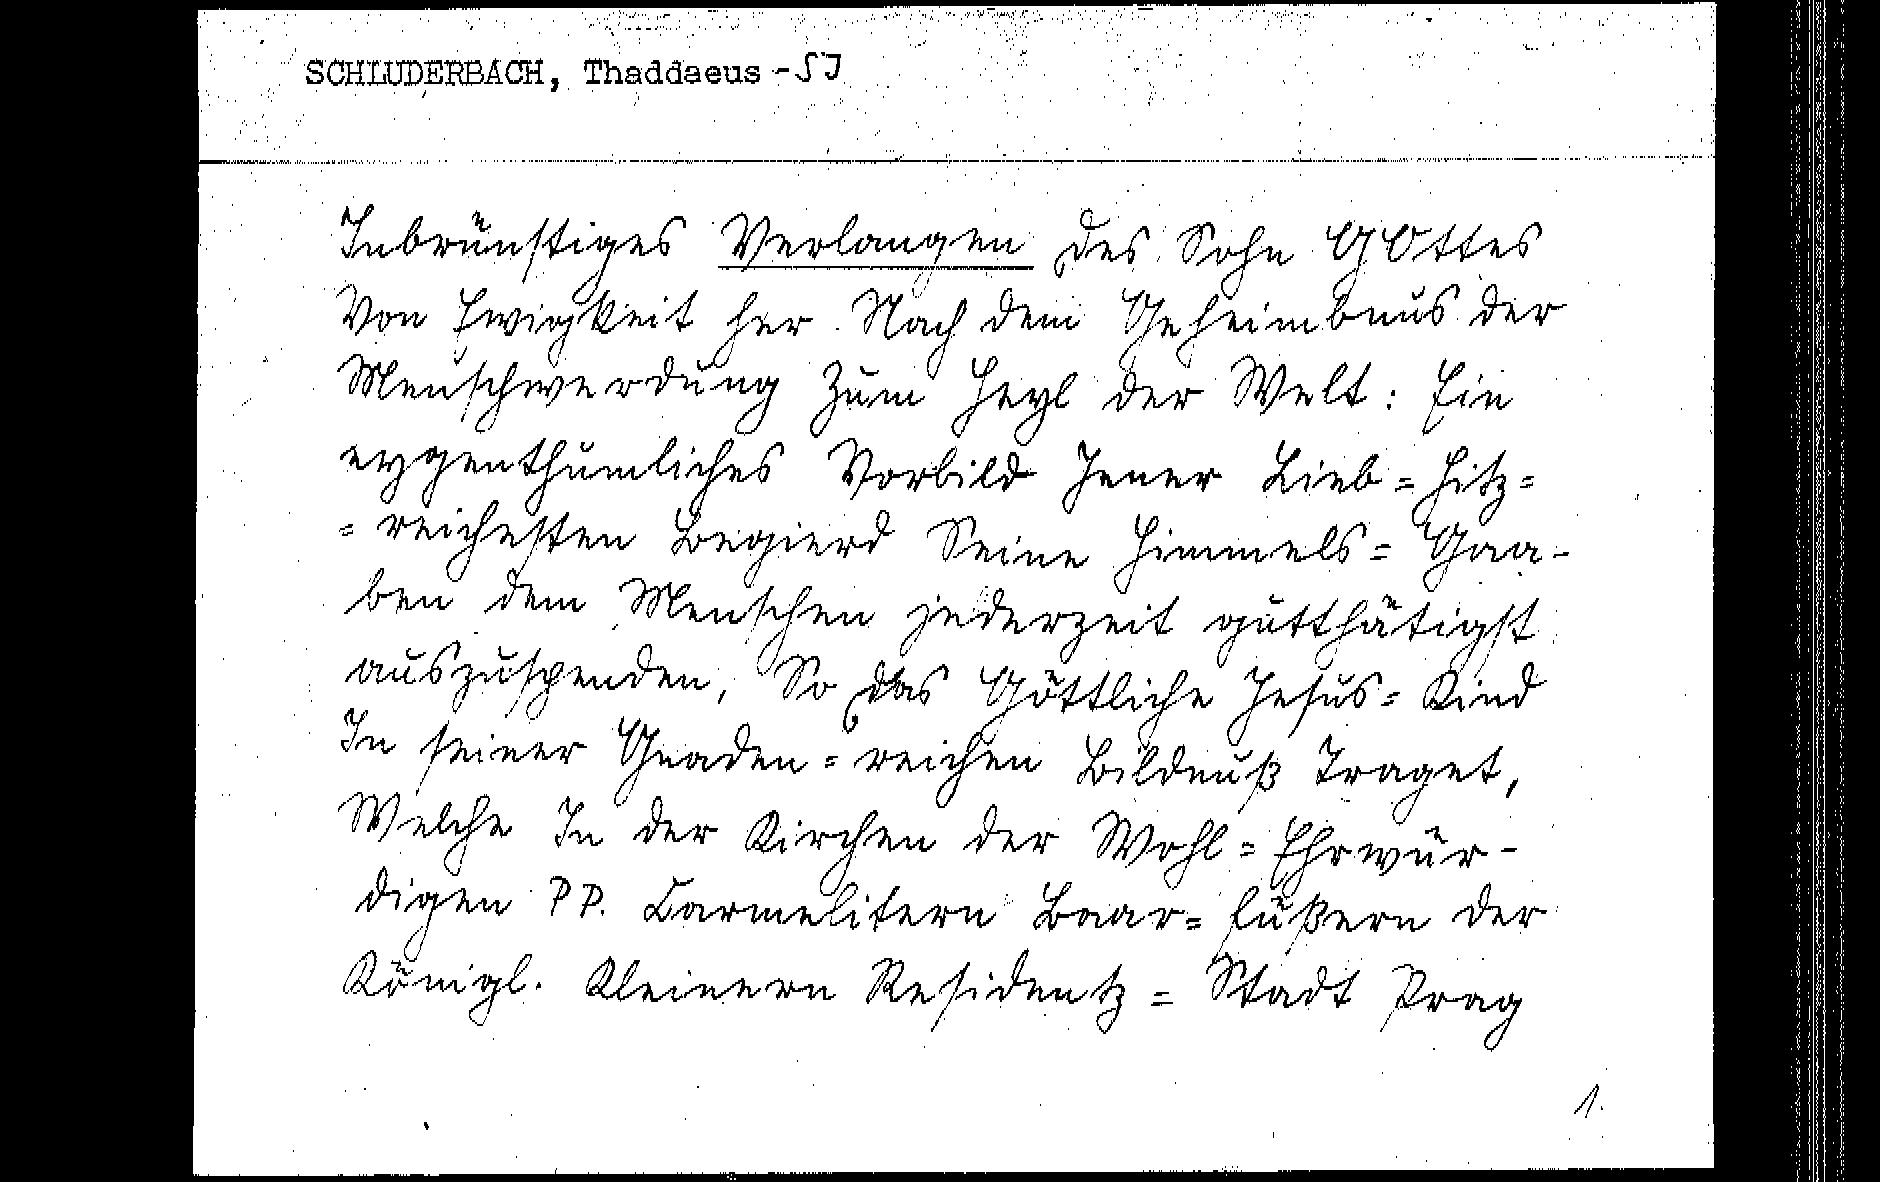 SCHLUDERBACH, Thaddaeus - SJ
Inbrünstiges Verlangen des Sohn GOttes
Von Ewigkeit her Nach dem Geheimbnus der
Menschwerdung Zum Heyl der Welt: Ein
eygenthumliches Vorbild Jener Lieb=Hitz=
=reichesten Begierd Seine Himmels=Gaa-
ben dem Menschen jederzeit gutthätigst
auszuspenden, So das Göttliche Jesus=Kind
In seiner Gnaden=reichen Bildnuß Traget,
Welche In der Kirchen der Wohl=Ehrwür-
digen PP. Carmelitern Baar=fußern der
Königl. Kleinern Residentz=Stadt Prag
1.